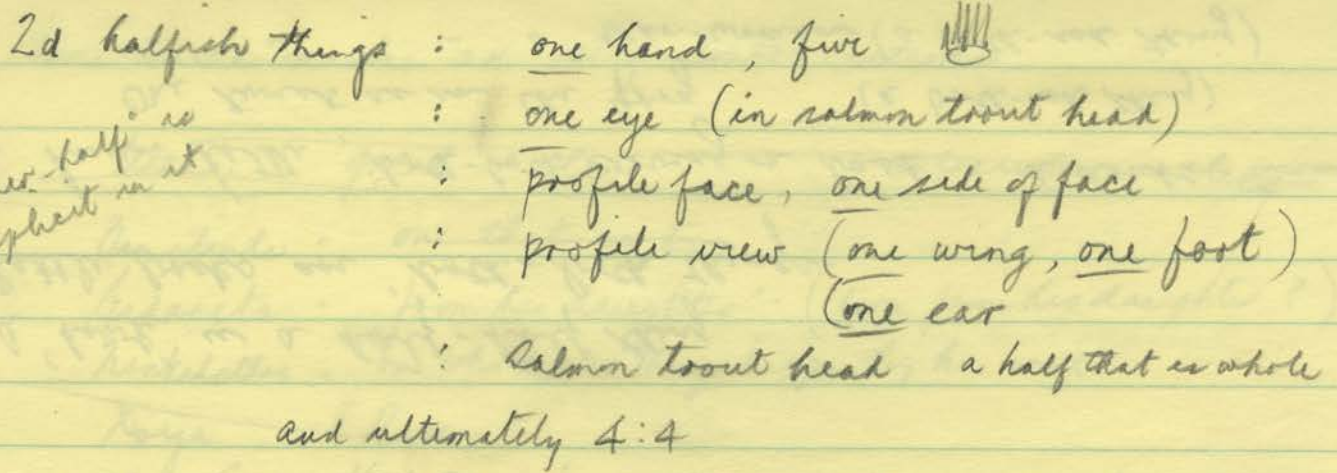 2d halfish things : one hand, five
: one eye (in salmon trout head)
half" is
in it
: profile face, one side of face
: profile view (one wing, one foot)
(one ear
: Salmon trout head a half that is whole
and ultimately 4:4